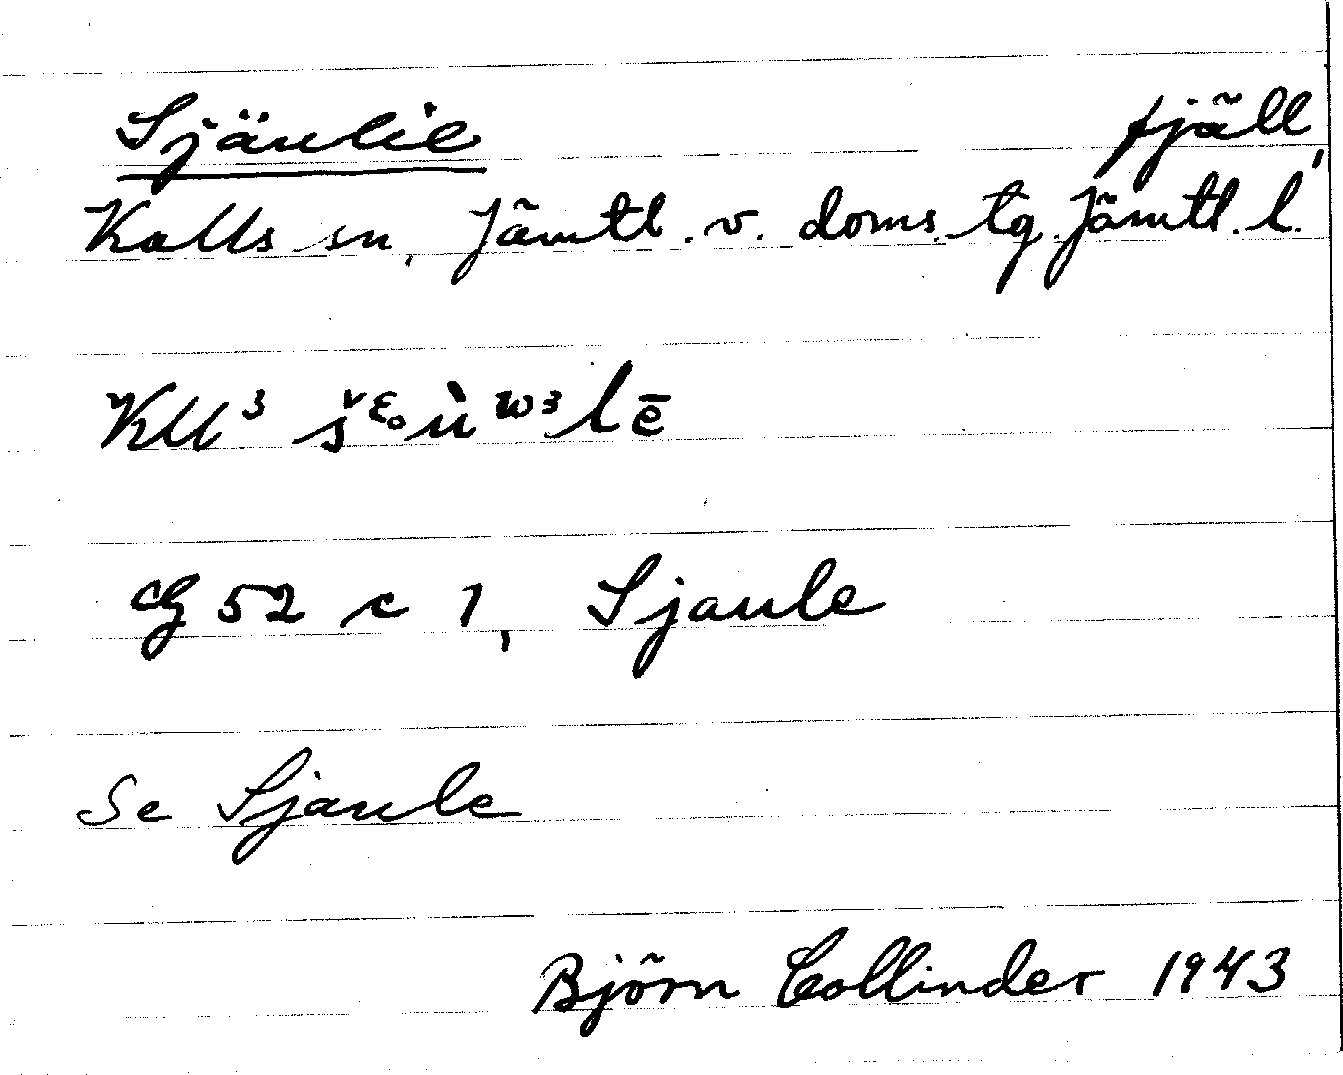 Sjäulie fjäll,
Kalls sn, Jämtl. v. doms. tg Jämtl. l.
Kll³ š ᵋₒ ù ʷ³ l ē
G 52 c 1, Sjaule
Se Sjaule
Björn Collinder 1943